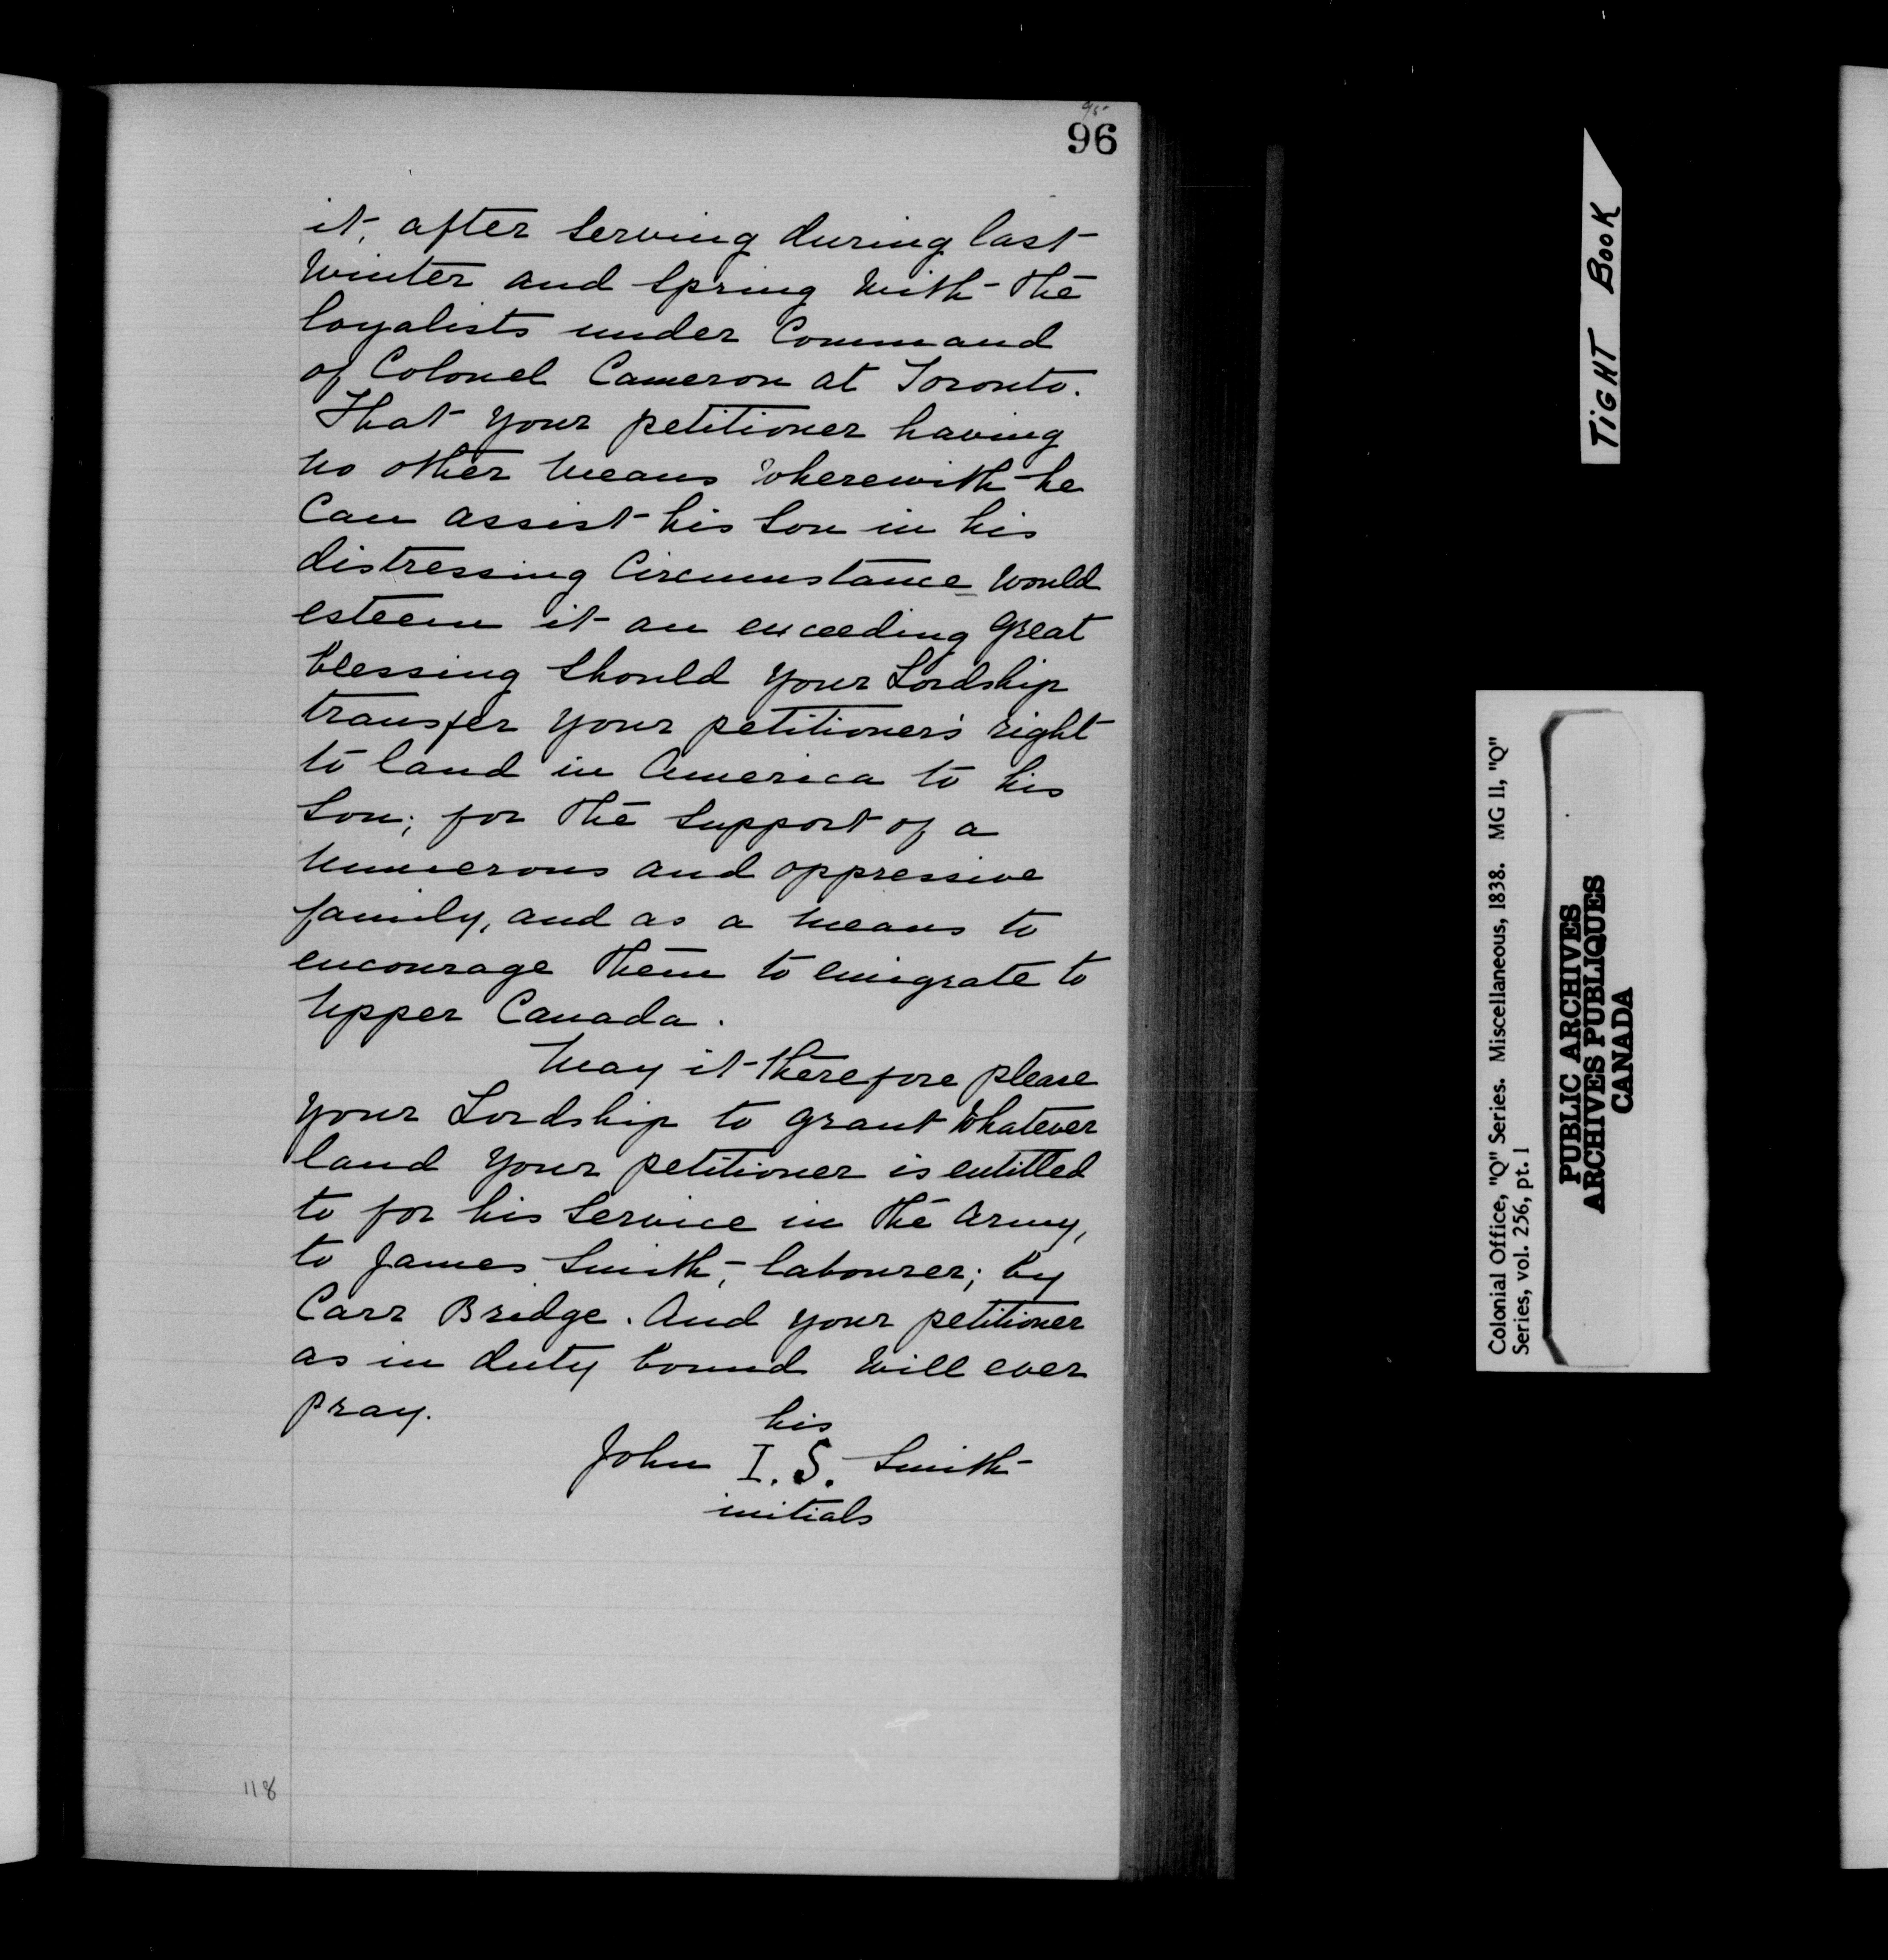 95
96
it, after serving during last
Winter and Spring With the
loyalists under Command
of Colonel Cameron at Toronto.
That your petitioner having
no other means wherewith he
Can assist his Son in his
distressing Circumstance would
esteem it an exceeding great
blessing should your Lordship
transfer your petitioner's right
to land in America to his
Son; for the Support of a
numerous and oppressive
family, and as a means to
encourage them to emigrate to
Upper Canada.
May it therefore please
your Lordship to grant Whatever
land your petitioner is entitled
to for his Service in the Army,
to James Smith, labourer; by
Carr Bridge. And your petitioner
as in duty bound Will ever
pray.
his
John I. S. Smith
initials
118
TIGHT BOOK
Colonial Office, "Q" Series. Miscellaneous, 1838. MG 11, "Q"
Series, vol. 256, pt. 1
PUBLIC ARCHIVES
ARCHIVES PUBLIQUES
CANADA